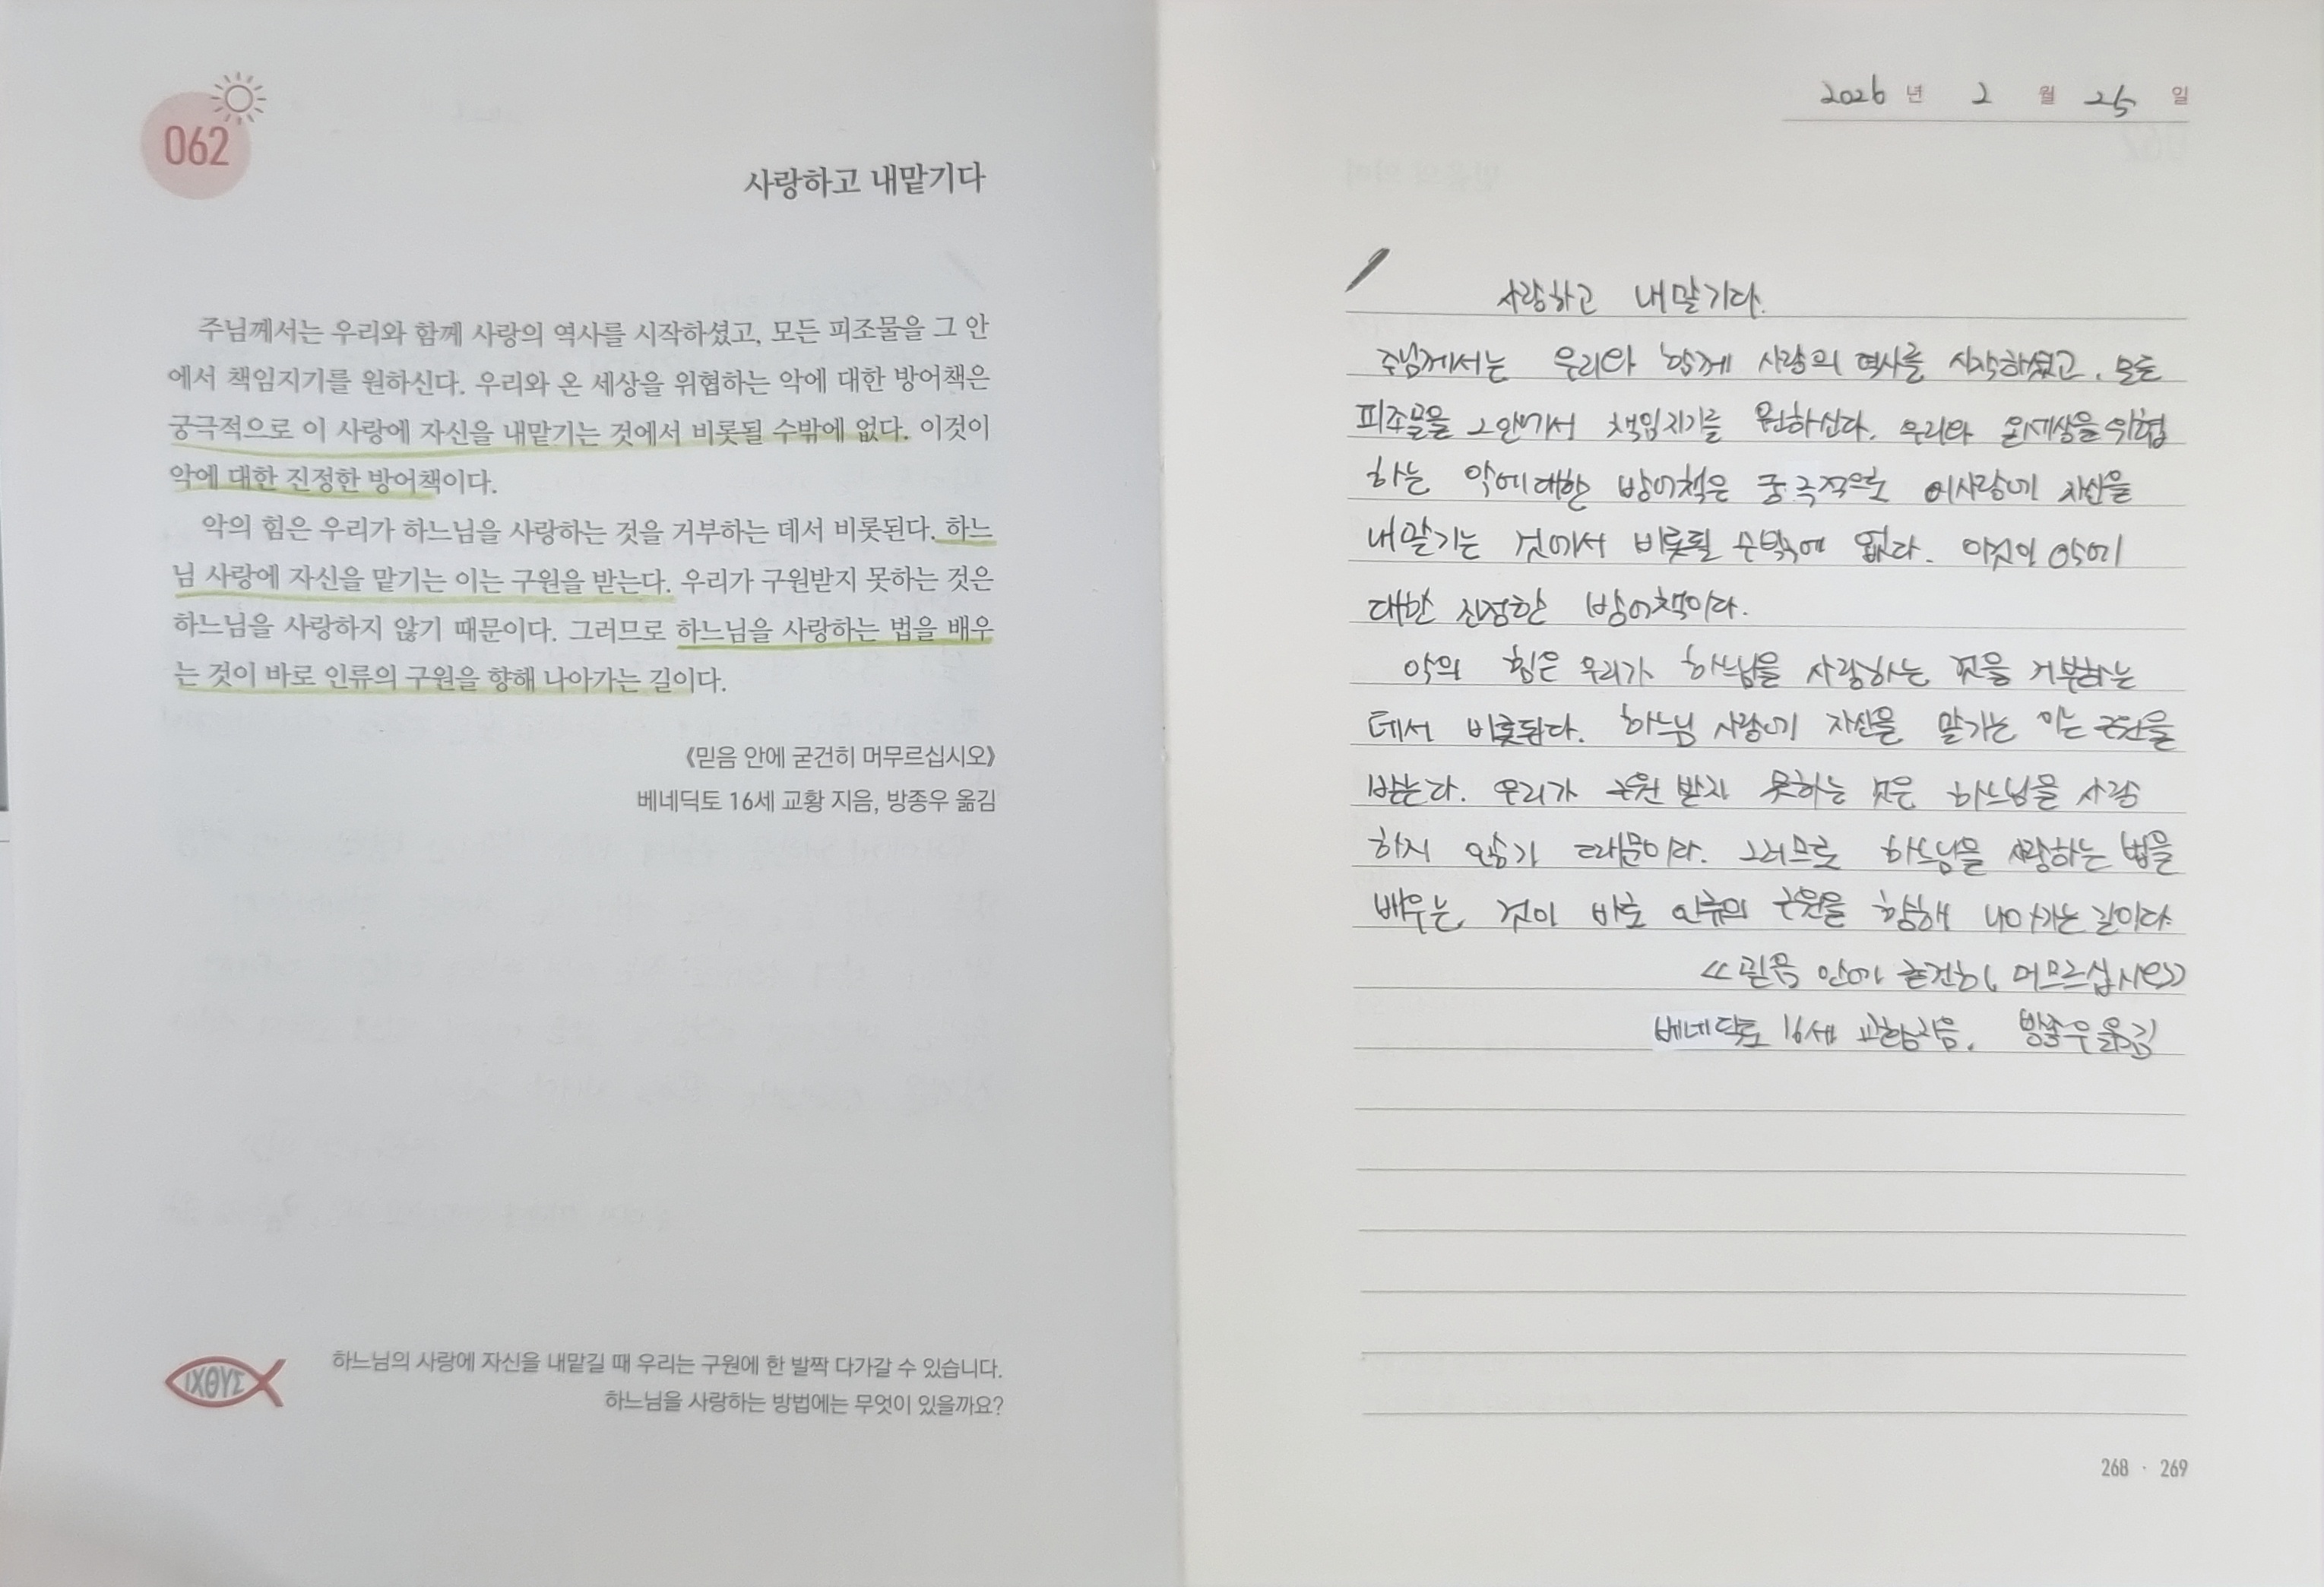 062
사랑하고 내맡기다
주님께서는 우리와 함께 사랑의 역사를 시작하셨고, 모든 피조물을 그 안
에서 책임지기를 원하신다. 우리와 온 세상을 위협하는 악에 대한 방어책은
궁극적으로 이 사랑에 자신을 내맡기는 것에서 비롯될 수밖에 없다. 이것이
악에 대한 진정한 방어책이다.
악의 힘은 우리가 하느님을 사랑하는 것을 거부하는 데서 비롯된다. 하느
님 사랑에 자신을 맡기는 이는 구원을 받는다. 우리가 구원받지 못하는 것은
하느님을 사랑하지 않기 때문이다. 그러므로 하느님을 사랑하는 법을 배우
는 것이 바로 인류의 구원을 향해 나아가는 길이다.
《믿음 안에 굳건히 머무르십시오》
베네딕토 16세 교황 지음, 방종우 옮김
ΙΧΘΥΣ
하느님의 사랑에 자신을 내맡길 때 우리는 구원에 한 발짝 다가갈 수 있습니다.
하느님을 사랑하는 방법에는 무엇이 있을까요?
2026 년 2 월 25 일
사랑하고 내맡기다.
주님께서는 우리와 함께 사랑의 역사를 시작하셨고, 모든
피조물을 그 안에서 책임지기를 원하신다. 우리와 온세상을 위협
하는 악에 대한 방어책은 궁극적으로 이사랑에 자신을
내맡기는 것에서 비롯될 수밖에 없다. 이것이 악에
대한 진정한 방어책이다.
악의 힘은 우리가 하느님을 사랑하는 것을 거부하는
데서 비롯된다. 하느님 사랑에 자신을 맡기는 이는 구원을
받는다. 우리가 구원 받지 못하는 것은 하느님을 사랑
하지 않기 때문이다. 그러므로 하느님을 사랑하는 법을
배우는 것이 바로 인류의 구원을 향해 나아가는 길이다.
《믿음 안에 굳건히 머무르십시오》
베네딕토 16세 교황지음, 방종우 옮김
268 · 269